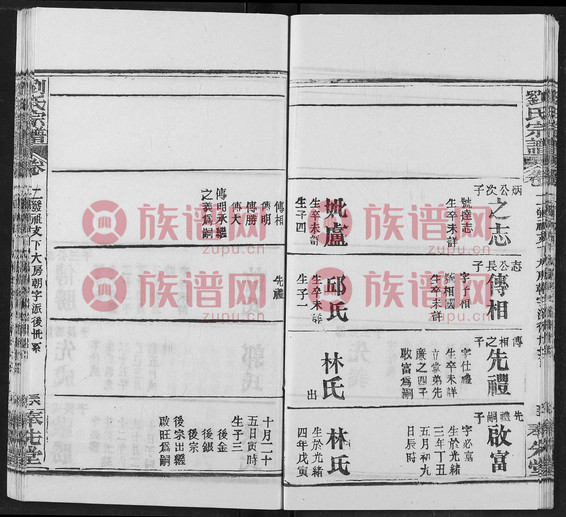 劉氏宗譜
炳公次子
之志
號達志
生卒未詳
妣盧氏
生卒未詳
生子四
傳相
傳明
傳勝
傳大
傳明承繼
之義爲嗣
志公長子
傳相
字子相
號相國
生卒未詳
邱氏
生卒未詳
生子一
先禮
傳相之子
先禮
字仕禮
生卒未詳
立堂弟先
之四子
啟富爲嗣
林氏
出
先禮嗣子
啟富
字必富
生於光緒
三年丁丑
五月初九
日辰時
林氏
生於光緒
四年戊寅
十月二十
五日寅時
生子三
後金
後銀
後宗
後宗出繼
啟旺爲嗣
劉氏宗譜
卷
支下大房朝字派後世系
奉先堂
族谱网
zupu.cn
族谱网
zupu.cn
族谱网
zupu.cn
族谱网
zupu.cn